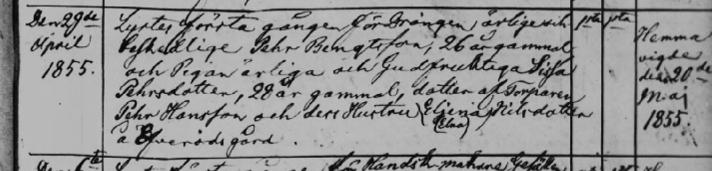 Den 29de
April
1855.
Lystes första gången för Drängen, ärlige och
beskedlige Pehr Bengtsson, 26 år gammal
och Pigan ärliga och Gudfrucktiga Sissa
Pehrsdotter, 28 år gammal, dotter af Torparen
Pehr Hansson och dess Hustru (Eljena) Nilsdotter
(Elna)
å Öfverödsgård.
Hemma
vigde
den 20de
Maj
1855.